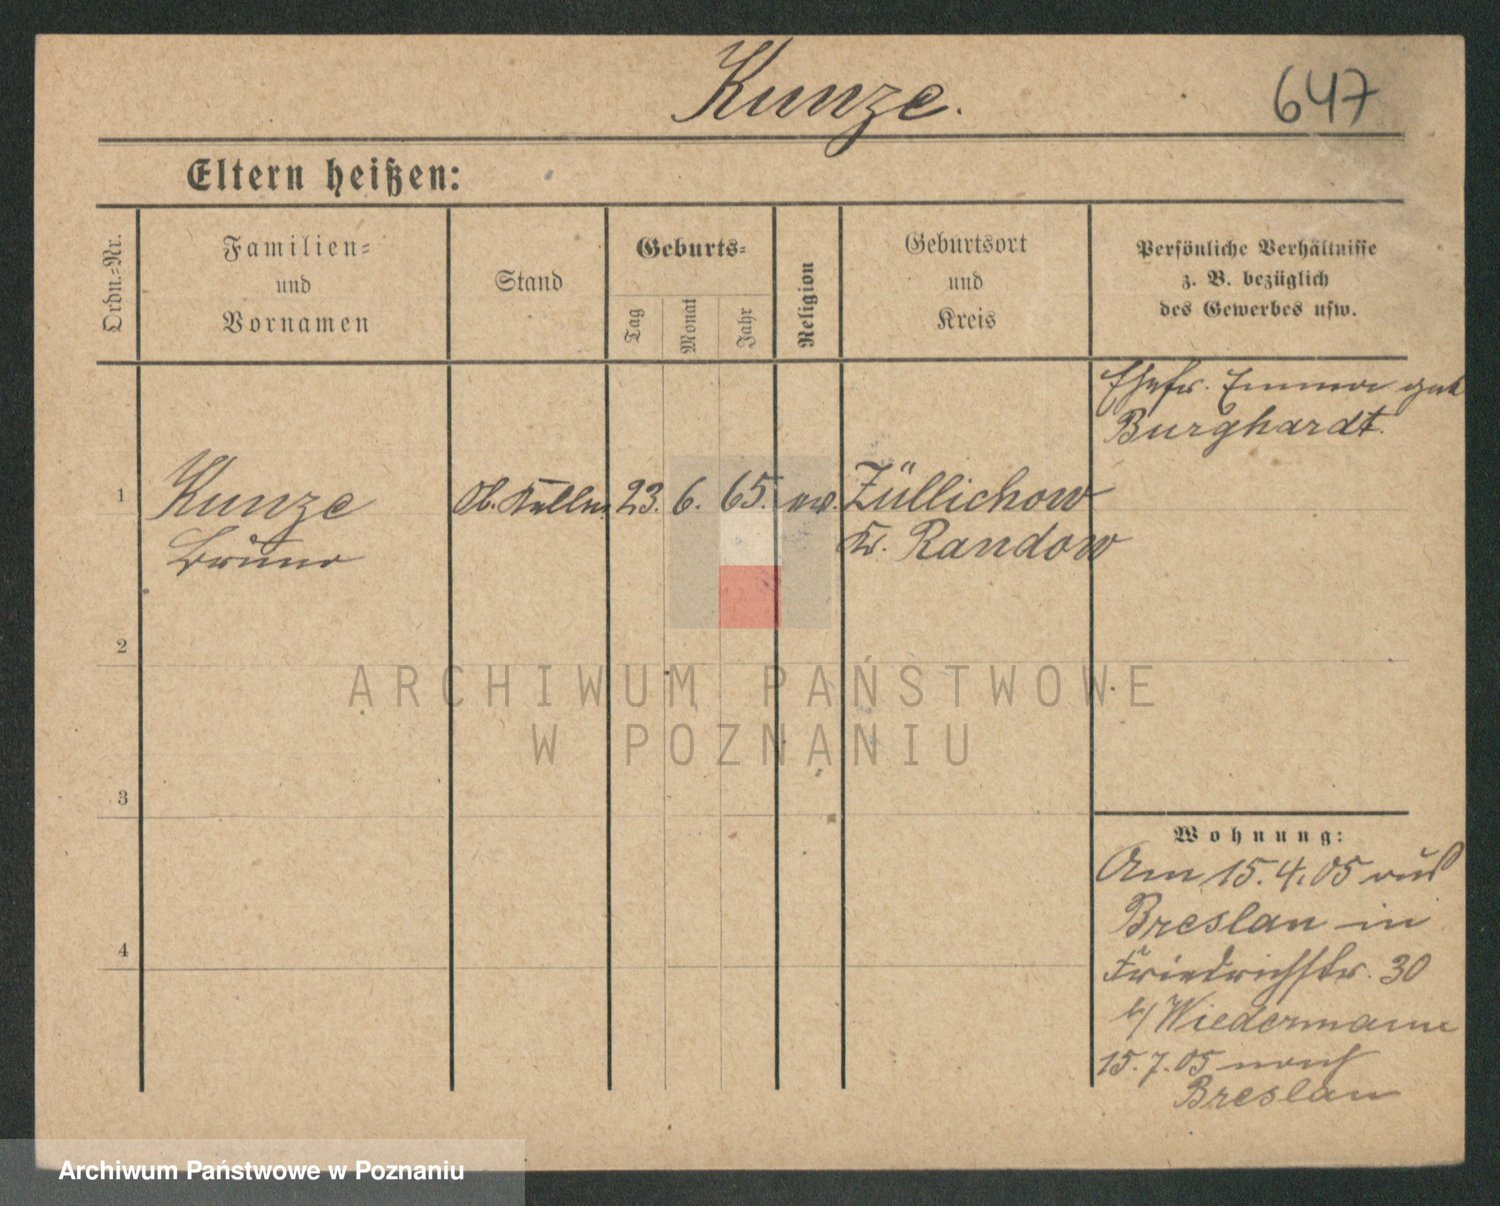 Kunze.
647
Eltern heißen:
Ordn.-Nr.
Familien-
und
Vornamen
Stand
Geburts-
Tag
Monat
Jahr
Religion
Geburtsort
und
Kreis
Persönliche Verhältnisse
z. B. bezüglich
des Gewerbes usw.
Ehefr. Emma geb
Burghardt.
1
Kunze
Bruno
Ob. Kelln.
23.
6.
65.
ev.
Züllichow
Kr. Randow
2
3
4
Wohnung:
Am 15.4.05 aus
Breslau in
Friedrichstr. 30
b/ Wiedermann
15.7.05 nach
Breslau
ARCHIWUM PAŃSTWOWE
W POZNANIU
Archiwum Państwowe w Poznaniu